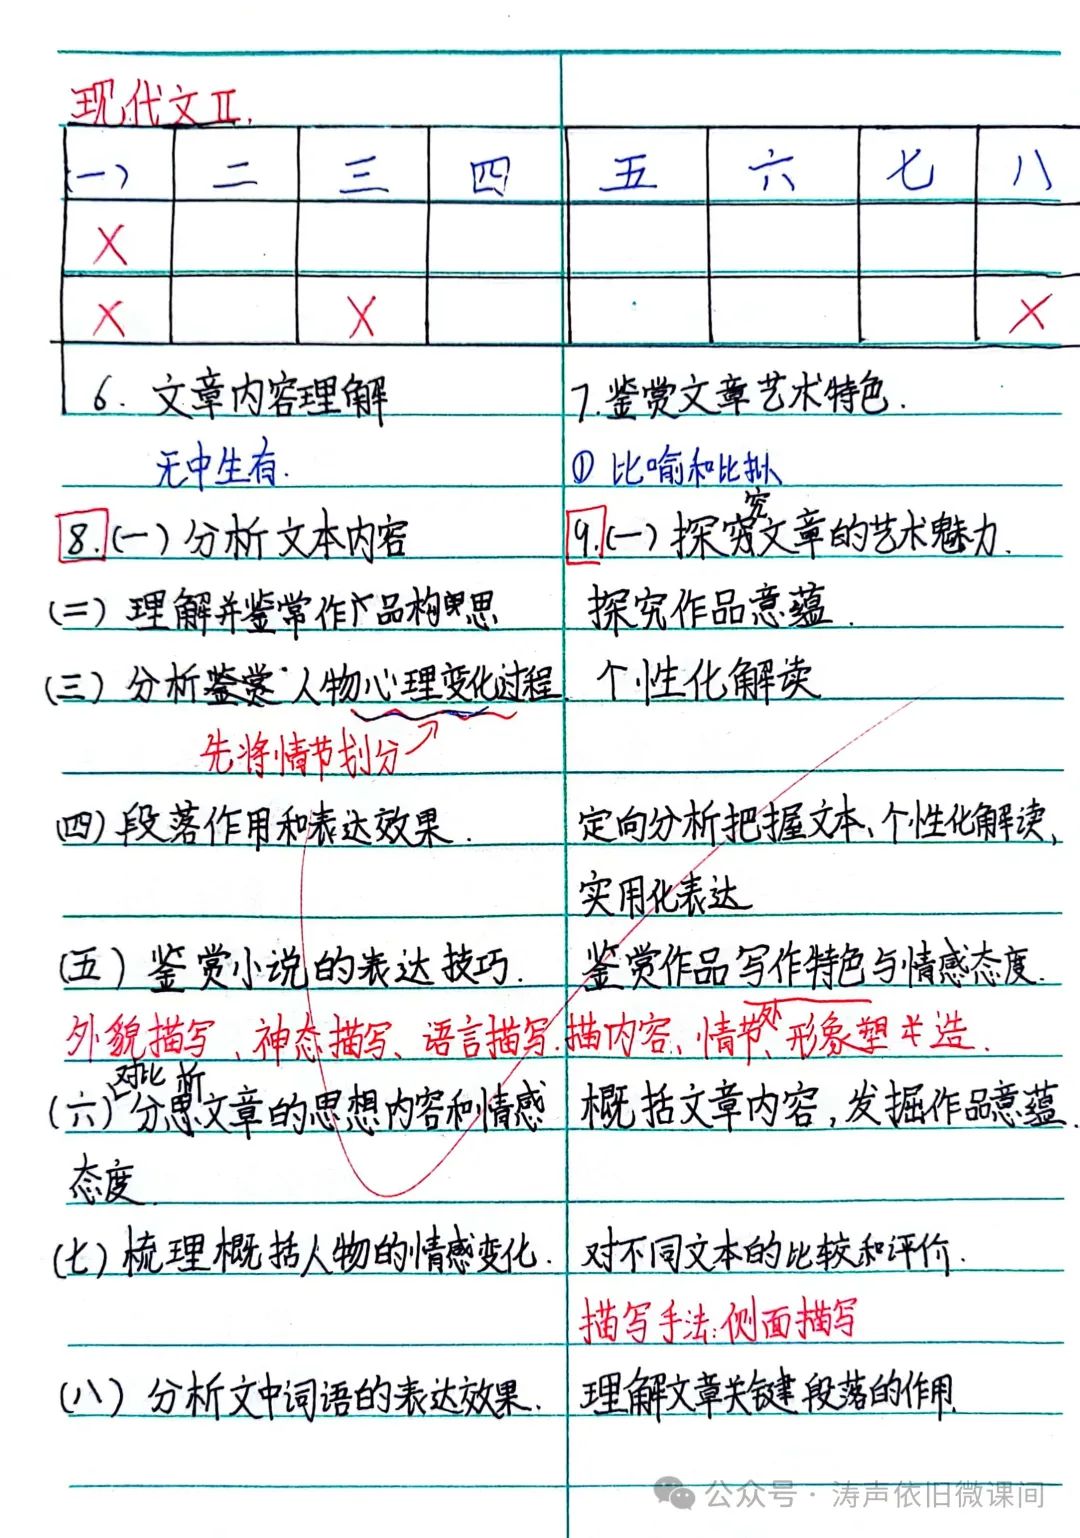 现代文Ⅱ.
(一) 二 三 四 五 六 七 八
X
X X X
6. 文章内容理解
7. 鉴赏文章艺术特色.
无中生有.
① 比喻和比拟
8. (一) 分析文本内容
究
9. (一) 探究文章的艺术魅力.
(二) 理解并鉴常作品构思
探究作品意蕴.
(三) 分析鉴赏人物心理变化过程.
个性化解读
先将情节划分
(四) 段落作用和表达效果.
定向分析把握文本、个性化解读,
实用化表达
(五) 鉴赏小说的表达技巧.
鉴赏作品写作特色与情感态度.
外貌描写、神态描写、语言描写.
描内容、情节、形象塑造.
对比 析
(六) 分思文章的思想内容和情感
态度.
概括文章内容,发掘作品意蕴.
(七) 梳理概括人物的情感变化.
对不同文本的比较和评价.
描写手法:侧面描写
(八) 分析文中词语的表达效果.
理解文章关键段落的作用.
公众号 · 涛声依旧微课间